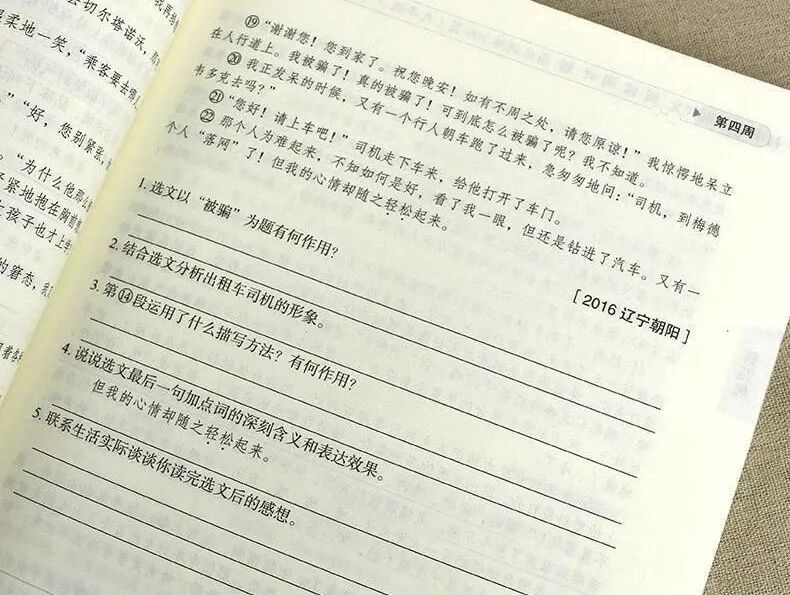 去切尔塔诺沃，那
柔地一笑，“乘客要去哪
”“好，您别紧张，
“为什么他那么
紧地抱在胸前
孩子也才上
的窘态，我
第四周
⑲“谢谢您！您到家了。祝您晚安！如有不周之处，请您原谅！”我惊愕地呆立
在人行道上。我被骗了！真的被骗了！可到底怎么被骗了呢？我不知道。
⑳我正发呆的时候，又有一个行人朝车跑了过来，急匆匆地问：“司机，到梅德
韦多克去吗？”
㉑“您好！请上车吧！”司机走下车来，给他打开了车门。
㉒那个人为难起来，不知如何是好，看了我一眼，但还是钻进了汽车。又有一
个人“落网”了！但我的心情却随之轻松起来。
[2016辽宁朝阳]
1. 选文以“被骗”为题有何作用？
2. 结合选文分析出租车司机的形象。
3. 第⑭段运用了什么描写方法？有何作用？
4. 说说选文最后一句加点词的深刻含义和表达效果。
但我的心情却随之轻松起来。
5. 联系生活实际谈谈你读完选文后的感想。